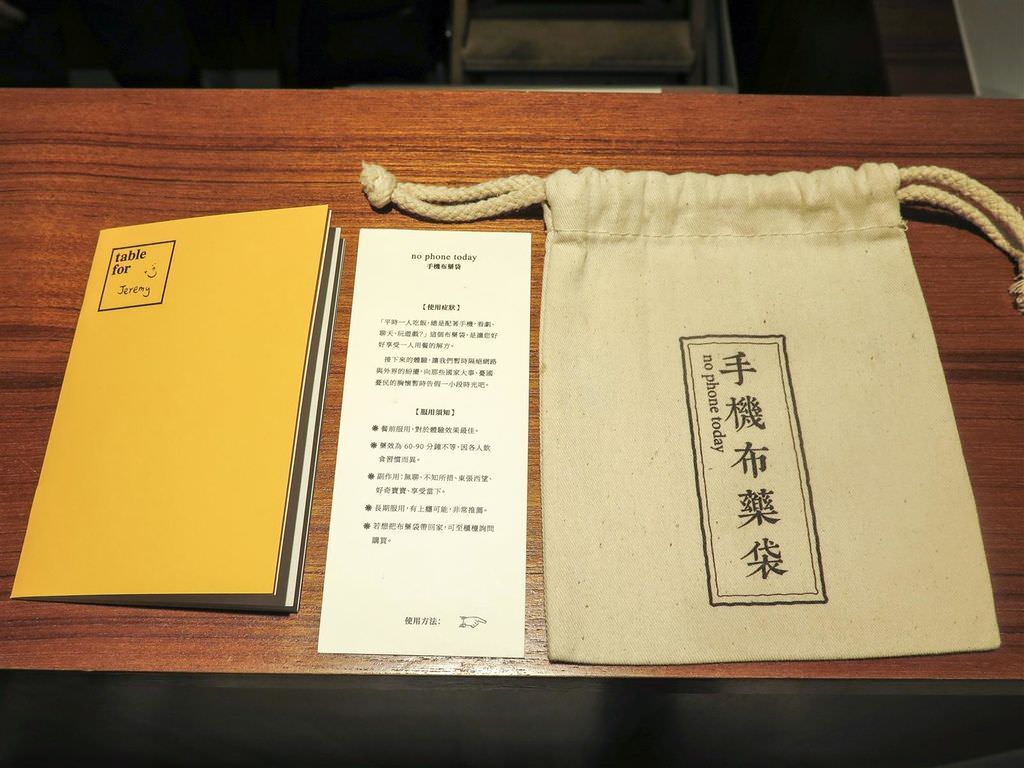 table
for
Jeremy
no phone today
手機布藥袋
【使用症狀】
「平時一人吃飯，總是配著手機，看劇、
聊天、玩遊戲？」這個布藥袋，是讓您好
好享受一人用餐的解方。
接下來的體驗，讓我們暫時隔絕網路
與外界的紛擾，向那些國家大事、憂國
憂民的胸懷暫時告假一小段時光吧。
【服用須知】
❋ 餐前服用，對於體驗效果最佳。
❋ 藥效為 60-90 分鐘不等，因各人飲
食習慣而異。
❋ 副作用：無聊、不知所措、東張西望、
好奇寶寶、享受當下。
❋ 長期服用，有上癮可能，非常推薦。
❋ 若想把布藥袋帶回家，可至櫃檯詢問
購買。
使用方法：
手機布藥袋
no phone today